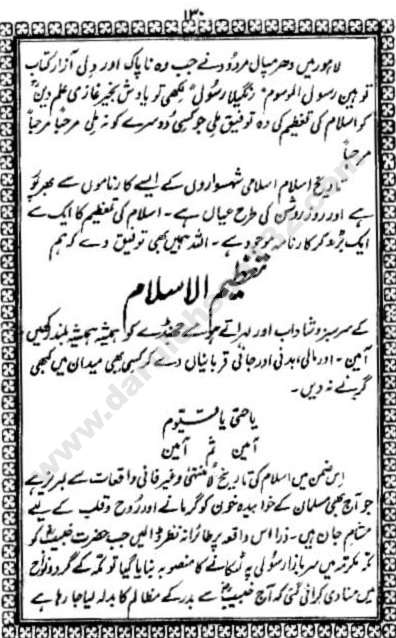 ۱۳۰
لاہور میں دھرمپال مردود نے جب وہ ناپاک اور دلی آزار کتاب
توہین رسول الموسوم "رنگیلا رسول" لکھی تو یادش بخیر غازی علم دین
کو اسلام کی تعظیم کی وہ توفیق ملی جو کسی دوسرے کو نہ ملی مرحباً مرحباً
مرحباً
تاریخ اسلام اسلامی شہسواروں کے ایسے کارناموں سے بھرپور
ہے اور روز روشن کی طرح عیاں ہے۔ اسلام کی تعظیم کا ایک سے
ایک بڑھ کر کارنامہ موجود ہے۔ اللہ ہمیں بھی توفیق دے کہ ہم
تعظیم الاسلام
کے سرسبز و شاداب اور لہراتے ہوئے جھنڈے کو ہمیشہ ہمیشہ بلند رکھیں
آمین۔ اور مالی، بدنی اور جانی قربانیاں دے کر کسی بھی میدان میں کبھی
گرنے نہ دیں۔
یا حیّ یا قیّوم
آمین ثم آمین
اِس ضمن میں اسلام کی تاریخ لامنتہیٰ و غیر فانی واقعات سے لبریز ہے
جو آج بھی مسلمان کے خوابیدہ خون کو گرمانے اور روح و قلب کے لیے
جان ہیں۔ ذرا اس واقعہ پر طائرانہ نظر ڈالیں جب حضرت خبیبؓ کو
مکہ مکرمہ میں سر بازار سُولی پہ لٹکانے کا منصوبہ بنایا گیا تو مکّہ کے گرد و نواح
میں منادی کرائی گئی کہ آج خبیبؓ سے بدر کے مظالم کا بدلہ لیا جا رہا ہے
www.dar